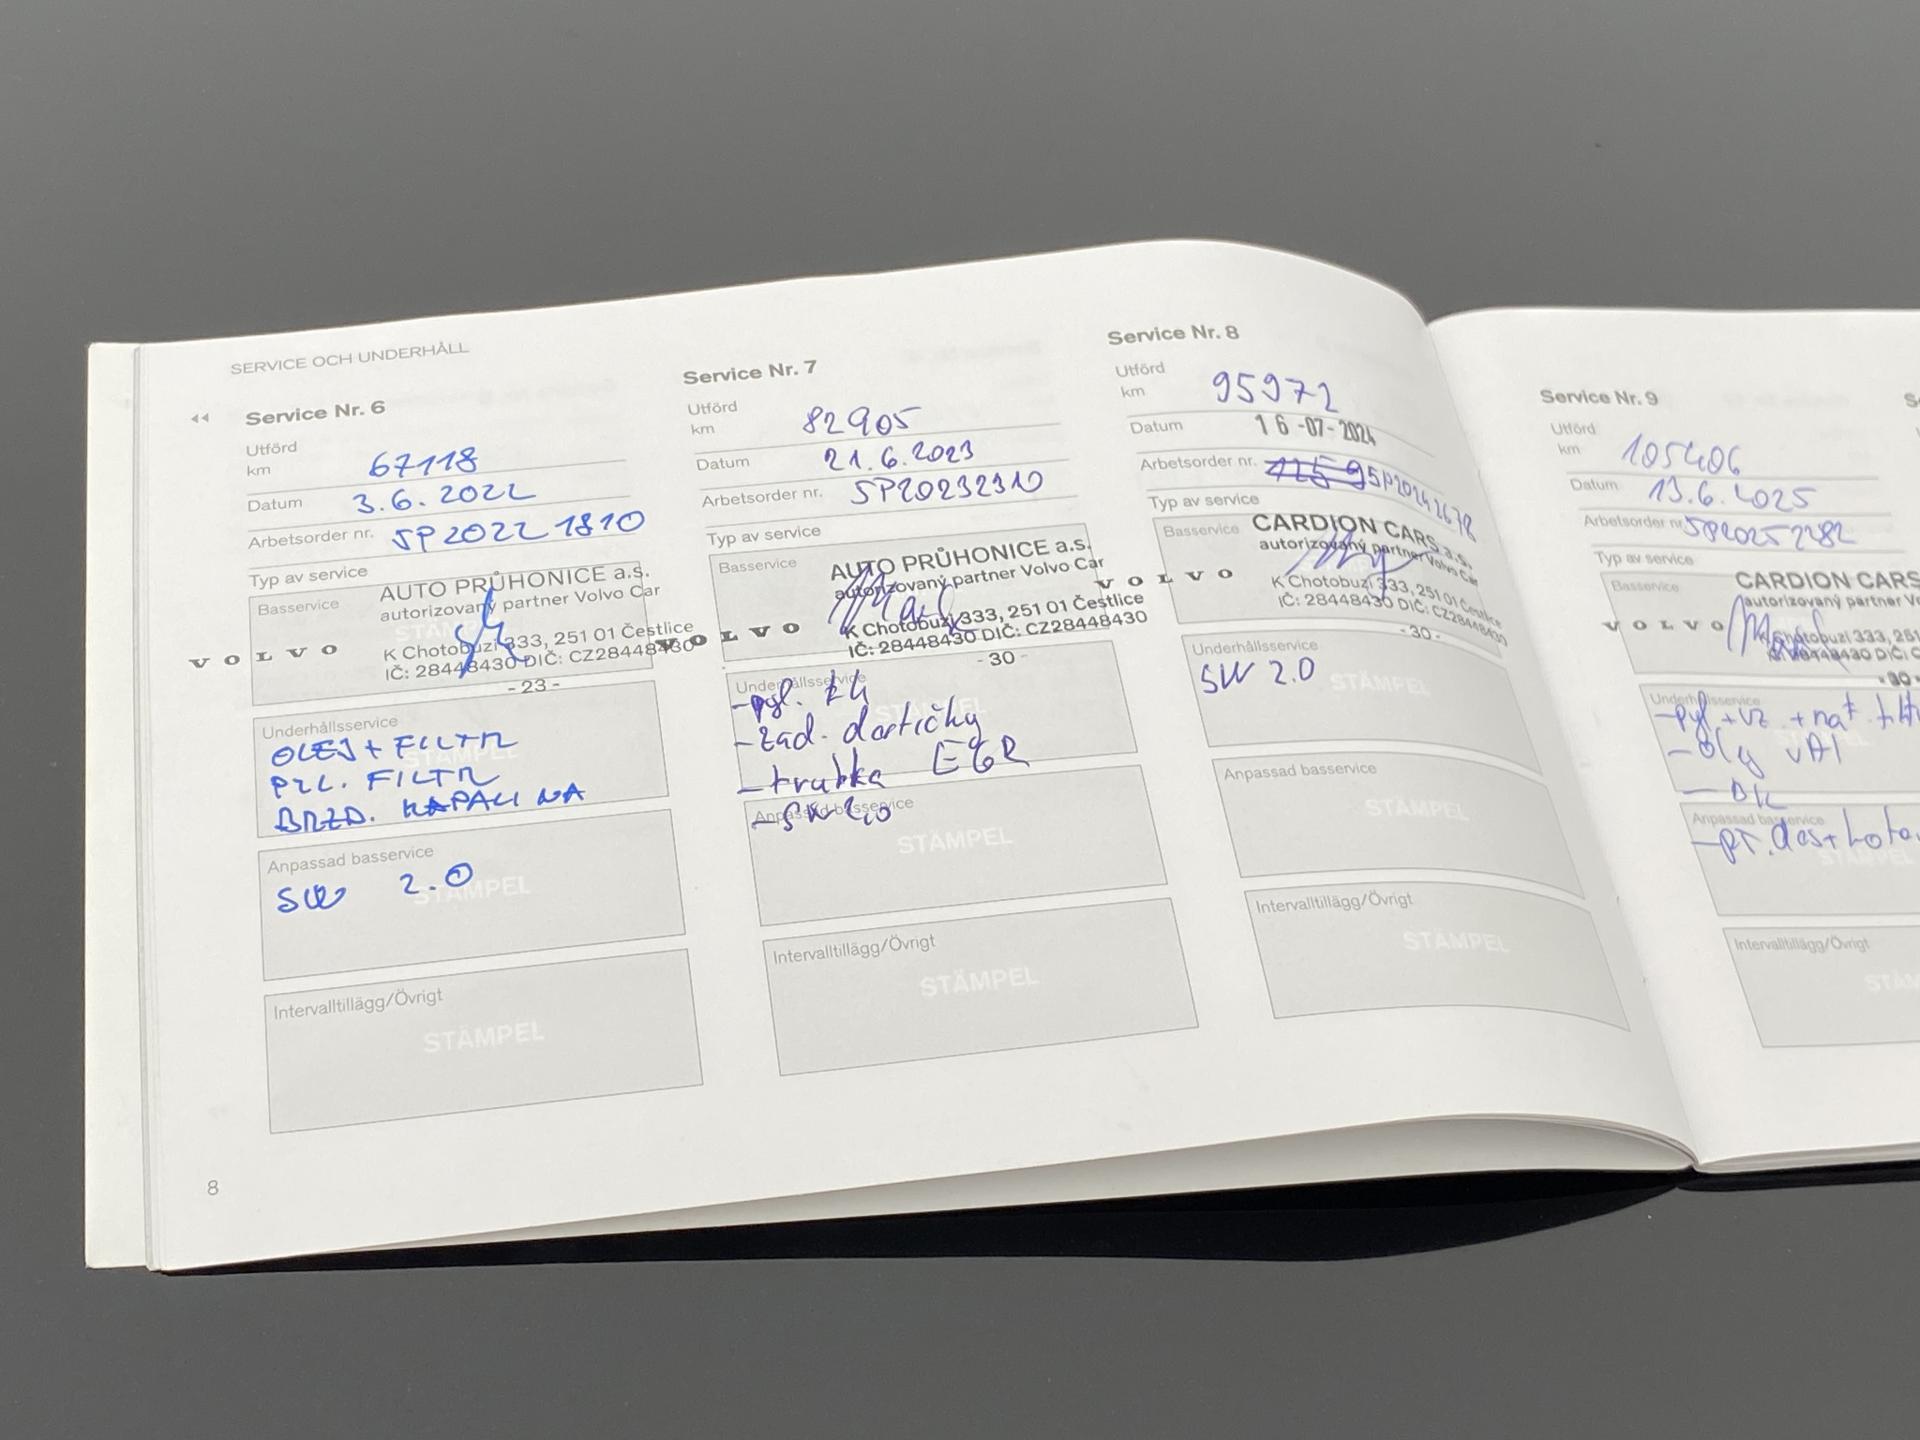 SERVICE OCH UNDERHÅLL
Service Nr. 6
Utförd
km 67118
Datum 3.6.2022
Arbetsorder nr. SP20221810
Typ av service
Basservice
AUTO PRŮHONICE a.s.
autorizovaný partner Volvo Car
VOLVO
K Chotobuzi 333, 251 01 Čestlice
IČ: 28448430 DIČ: CZ28448430
- 23 -
Underhållsservice
OLEJ + FILTR
PYL. FILTR
BRZD. KAPALINA
Anpassad basservice
SW 2.0
STÄMPEL
Intervalltillägg/Övrigt
STÄMPEL
8
Service Nr. 7
Utförd
km 82905
Datum 21.6.2023
Arbetsorder nr. SP20232310
Typ av service
Basservice
AUTO PRŮHONICE a.s.
autorizovaný partner Volvo Car
VOLVO
K Chotobuzi 333, 251 01 Čestlice
IČ: 28448430 DIČ: CZ28448430
- 30 -
Underhållsservice
- pyl.
- zad. destičky
- trubka EGR
Anpassad basservice
- SW 2.0
STÄMPEL
Intervalltillägg/Övrigt
STÄMPEL
Service Nr. 8
Utförd
km 95972
Datum 16-07-2024
Arbetsorder nr. SP20242678
Typ av service
Basservice
CARDION CARS a.s.
autorizovaný partner Volvo Car
VOLVO
K Chotobuzi 333, 251 01 Čestlice
IČ: 28448430 DIČ: CZ28448430
- 30 -
Underhållsservice
SW 2.0
STÄMPEL
Anpassad basservice
STÄMPEL
Intervalltillägg/Övrigt
STÄMPEL
Service Nr. 9
Utförd
km 105406
Datum 13.6.2025
Arbetsorder nr. SP20252282
Typ av service
Basservice
CARDION CARS
autorizovaný partner
VOLVO
K Chotobuzi 333, 251
28448430 DIČ:
- 30 -
Underhållsservice
- pyl + vz
Anpassad basservice
STÄMPEL
Intervalltillägg/Övrigt